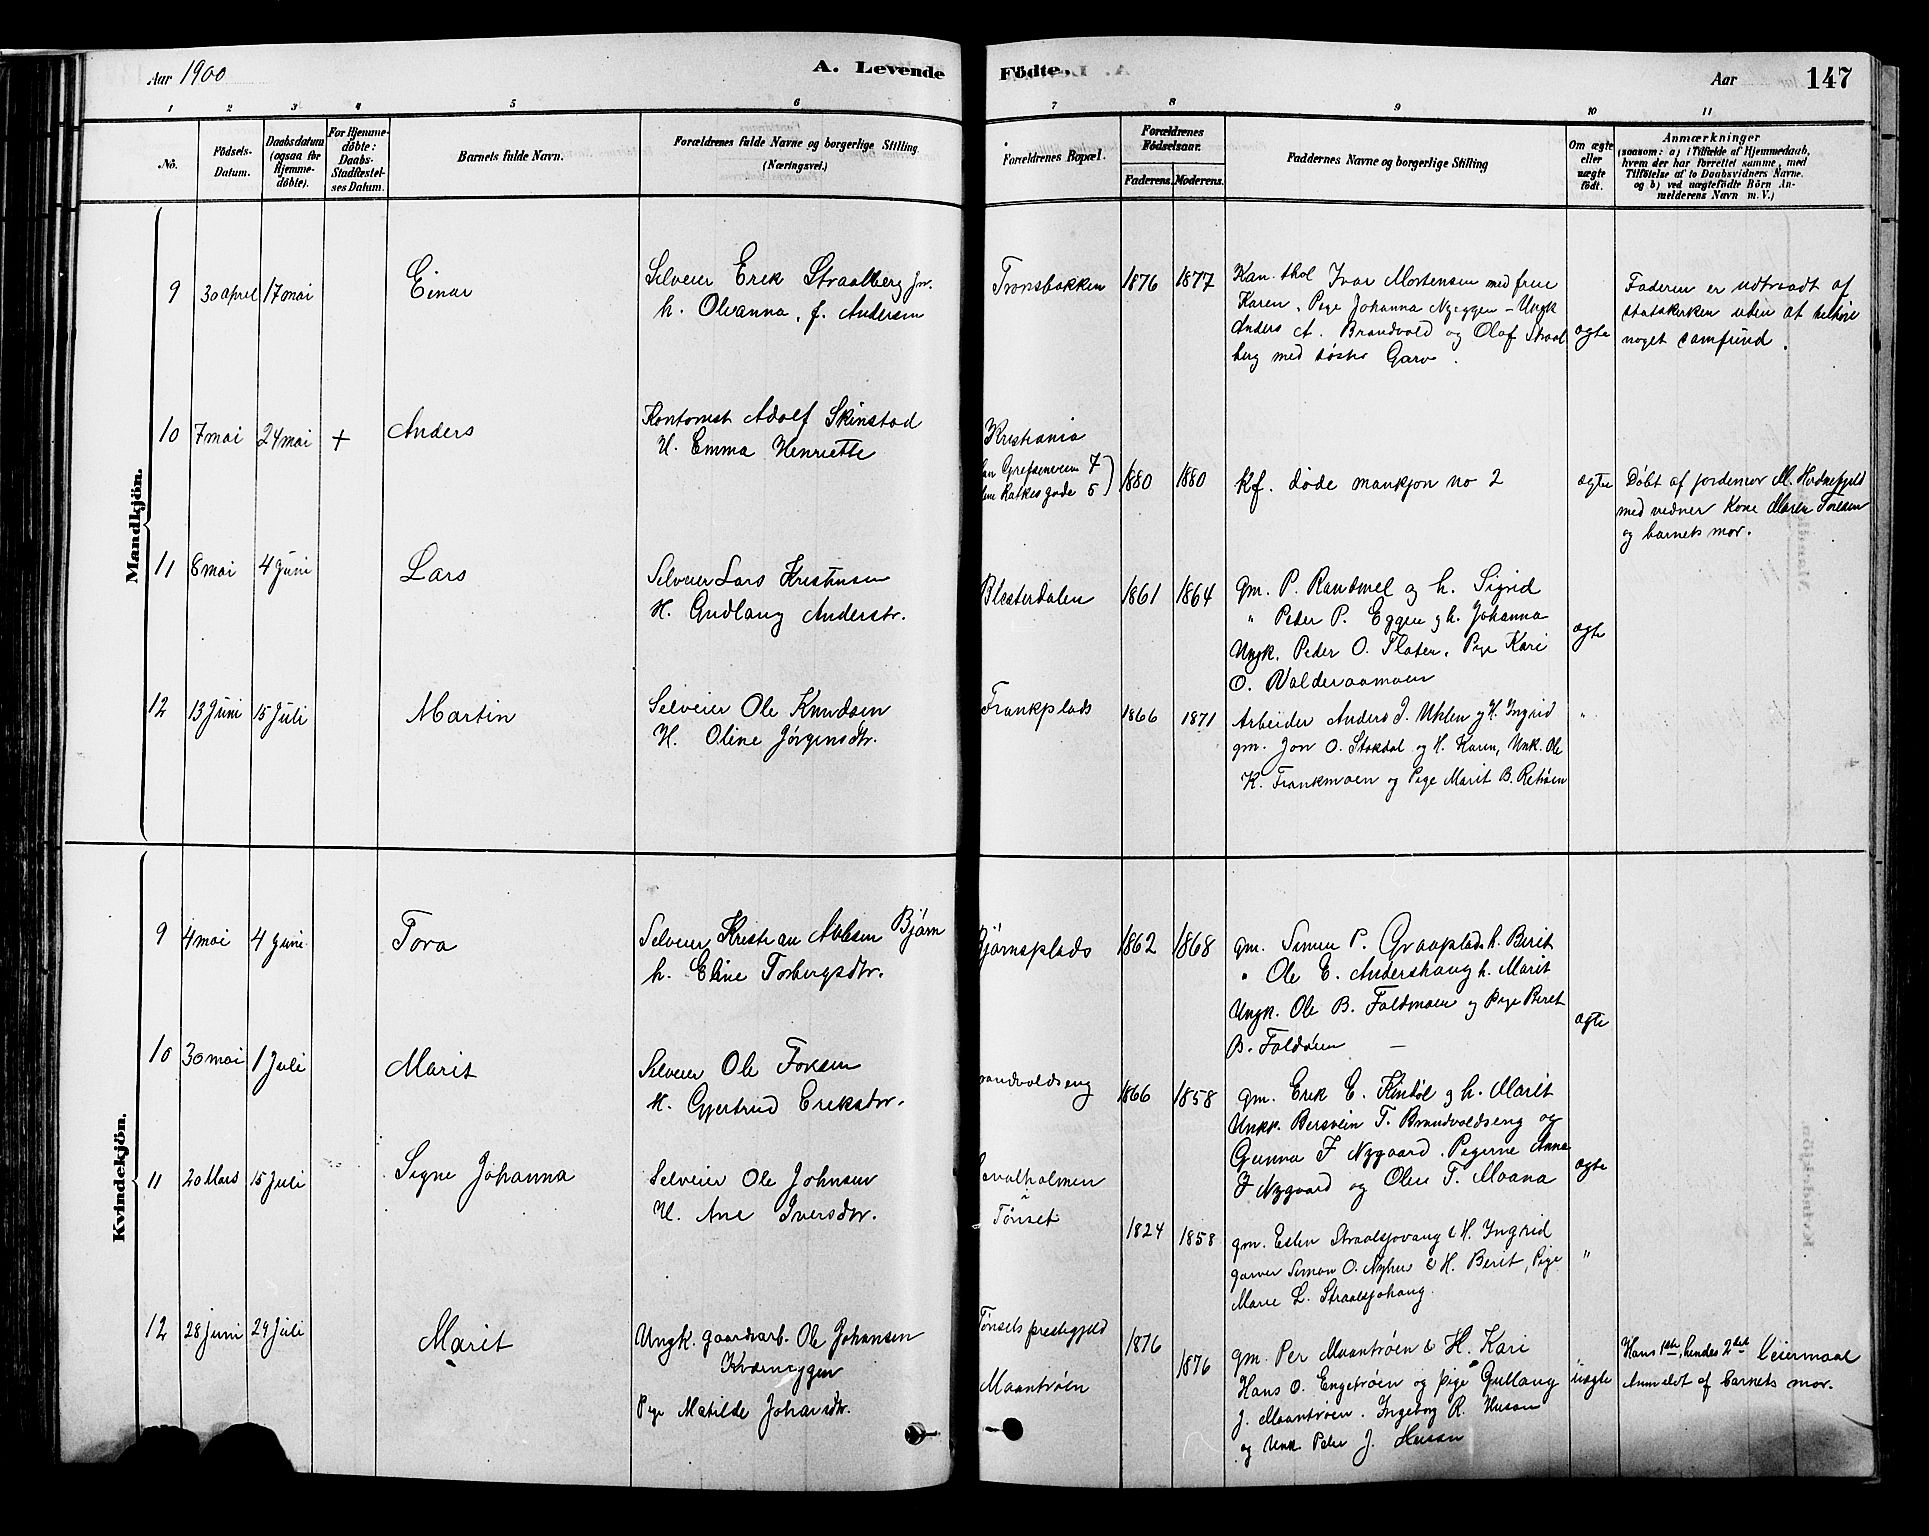 Aar 1900
A. Levende
Födte.
Aar
147
1 2 3 4 5 6 7 8 9 10 11
No.
Födsels-
Datum.
Daabsdatum
(ogsaa for
Hjemme-
döbte).
For Hjemme-
döbte:
Daabs-
Stadfæstel-
ses Datum.
Barnets fulde Navn.
Forældrenes fulde Navne og borgerlige Stilling
(Næringsvei.)
Forældrenes Bopæl.
Forældrenes
Födselsaar.
Faderens. Moderens.
Faddernes Navne og borgerlige Stilling
Om ægte
eller
uægte
födt.
Anmærkninger
(saasom: a) i Tilfælde af Hjemmedaab,
hvem der har forrettet samme, med
Tilföielse af to Daabsvidners Navne.
og b) ved uægtefödte Börn An-
melderens Navn m. V.)
Mandkjön.
9 30 april 17 mai Einar
Selveier Erik Straalberg jr.
h. Olvanna, f. Andersen
Tronsbakken 1876 1877
Kan. thol Ivar Mortensen med frue
Karen, Pige Johanna Nyeggen – Ungk
Anders A. Brandvold og Olaf Straal
berg med søster Garo.
ægte
Faderen er udtraadt af
statskirken uden at tilhøre
noget samfund.
10 7 mai 24 mai + Anders
Kontorist Adolf Skinstad
H. Emma Henriette
Kristiania
Grefsenveien 7
Ratkesgade 5) 1880 1880
Kf. døde mankjøn no 2
ægte
Døbt af jordemor M. Hvdnefjeld
med vidner Kone Maren Toresen
og barnets mor.
11 8 mai 4 Juni Lars
Selveier Lars Kristensen
H. Gudlaug Anderstr.
Blesterdalen 1861 1864
gm. P. Randmel og h. Sigrid
" Peder P. Eggen og h. Johanna
Ungk. Peder O. Flaten, Pige Kari
O. Valderaamoen
ægte
12 13 Juni 15 Juli Martin
Selveier Ole Knudsen
H. Oline Jørgensdtr.
Frankplads 1866 1871
Arbeider Anders J. Utklen og H. Ingrid
gm. Jon O. Stokdal og H. Karen, Unk. Ole
K. Frankmoen og Pige Marit B. Retrøen
"
Kvindekjön.
9 4 mai 4 Juni Tora
Selveier Kristian Bjørn
h. Eline Torbergsdtr.
Bjørnsplads 1862 1868
gm. Simen P. Graaplads h. Berit
" Ole E. Andershaug h. Marit
Ungk. Ole B. Foldmoen og Pige Beret
B. Foldøien –
ægte
10 30 mai 1 Juli Marit
Selveier Ole Toresen
H. Gjertrud Eriksdtr.
randvoldseng 1866 1858
gm. Erik E. Kindøl og h. Marit
Unkk. Bersvein T. Brandvoldseng og
Gunna J Nygaard. Pigerne Anna
J Nygaard og Olin T. Moana
ægte
11 20 Mars 15 Juli Signe Johanna
Selveier Ole Johnsen
H. Ane Iversdtr.
avalholmen
i
Tønset
1824 1858
gm. Esten Straalsjovang & H. Ingrid
garver Simon O. Nyhus & H. Berit, Pige
Marie L. Straalsjohaug.
"
12 28 Juni 29 Juli Marit
Ungk. gaardsarb. Ole Johansen
Kværneggen
Pige Matilde Johansdtr.
Tønsets prestegjeld
Maantrøen
1876 1876
gm. Per Maantrøen & H. Kari
Hans O. Engetrøen og Pige Gullaug
J. Maantrøen. Ingeborg R. Husan
og Unk Peder J. Husan
uægte
Hans 1ste, hendes 2det Leiermaal
Anmeldt af Barnets mor.